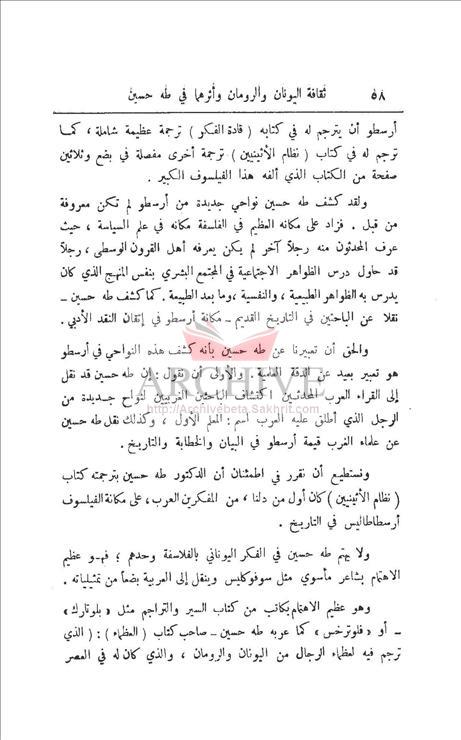 ٥٨ ثقافة اليونان والرومان وأثرهما في طه حسين
أرسطو أن يترجم له في كتابه ( قادة الفكر ) ترجمة عظيمة شاملة ، كما
ترجم له في كتاب ( نظام الأثينيين ) ترجمة أخرى مفصلة في بضع وثلاثين
صفحة من الكتاب الذي ألفه هذا الفيلسوف الكبير .
ولقد كشف طه حسين نواحي جديدة من أرسطو لم تكن معروفة
من قبل . فزاد على مكانه العظيم في الفلسفة مكانه في علم السياسة ، حيث
عرف المحدثون منه رجلاً آخر لم يكن يعرفه أهل القرون الوسطى ، رجلاً
قد حاول درس الظواهر الاجتماعية في المجتمع البشري بنفس المنهج الذي كان
يدرس به الظواهر الطبيعية ، والنفسية ، وما بعد الطبيعة . كما كشف طه حسين ـ
نقلا عن الباحثين في التاريخ القديم ـ مكانة أرسطو في إتقان النقد الأدبي .
والحق أن تعبيرنا عن طه حسين بأنه كشف هذه النواحي في أرسطو
هو تعبير بعيد عن الدقة العلمية . والأولى أن نقول : إن طه حسين قد نقل
إلى القراء العرب المحدثين اكتشاف الباحثين الغربيين لنواح جديدة من
الرجل الذي أطلق عليه العرب اسم : المعلم الأول ، وكذلك نقل طه حسين
عن علماء الغرب قيمة أرسطو في البيان والخطابة والتاريخ .
ARCHIVE
http://Archivebeta.Sakhrit.com
ونستطيع أن نقرر في اطمئنان أن الدكتور طه حسين بترجمته كتاب
( نظام الأثينيين ) كان أول من دلنا ، من المفكرين العرب ، على مكانة الفيلسوف
أرسطاطاليس في التاريخ .
ولا يهتم طه حسين في الفكر اليوناني بالفلاسفة وحدهم ؛ فهو عظيم
الاهتمام بشاعر مأسوي مثل سوفوكليس وينقل إلى العربية بضعاً من تمثيلياته .
وهو عظيم الاهتمام بكاتب من كتاب السير والتراجم مثل « بلوتارك »
ـ أو « فلوترخس » كما عربه طه حسين ـ صاحب كتاب ( العظماء ) : ( الذي
ترجم فيه لعظماء الرجال من اليونان والرومان ، والذي كان له في العصر